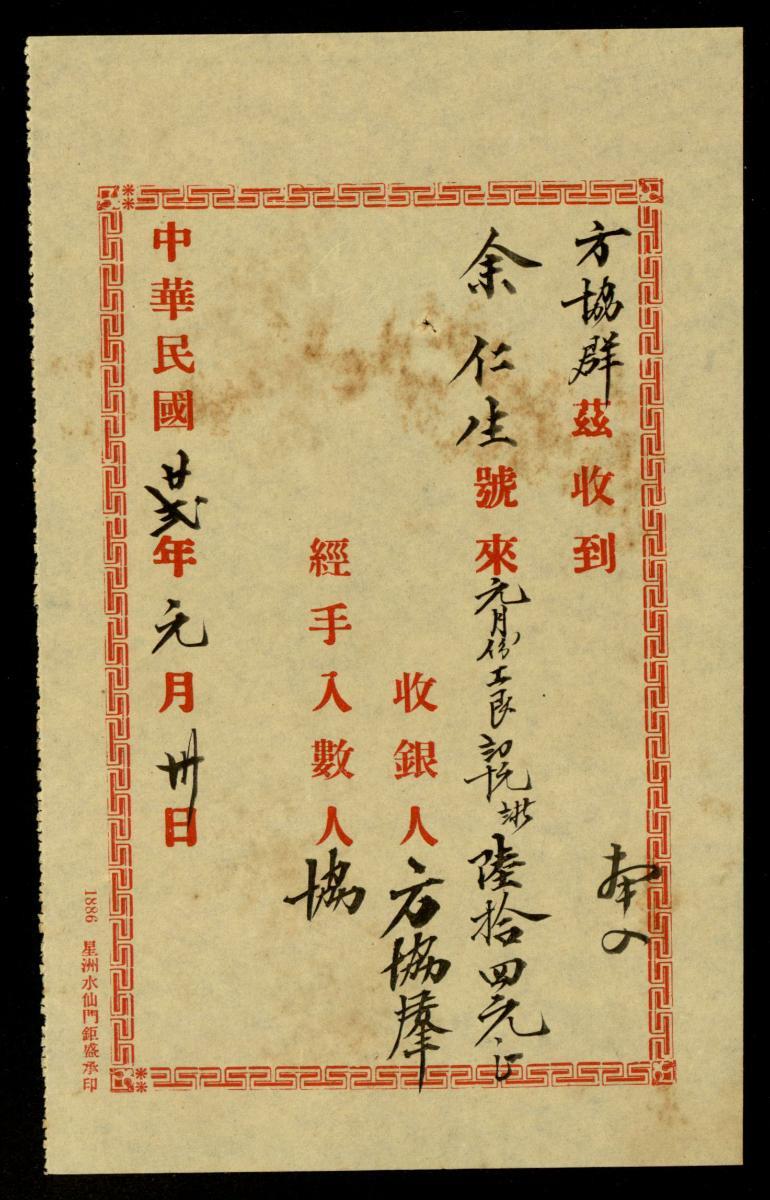 方協群茲收到
余仁生號來元月份工
陸拾四元
收銀人方協羣
經手入數人協
中華民國廿弍年元月卅日
1886 星洲水仙門鉅盛承印